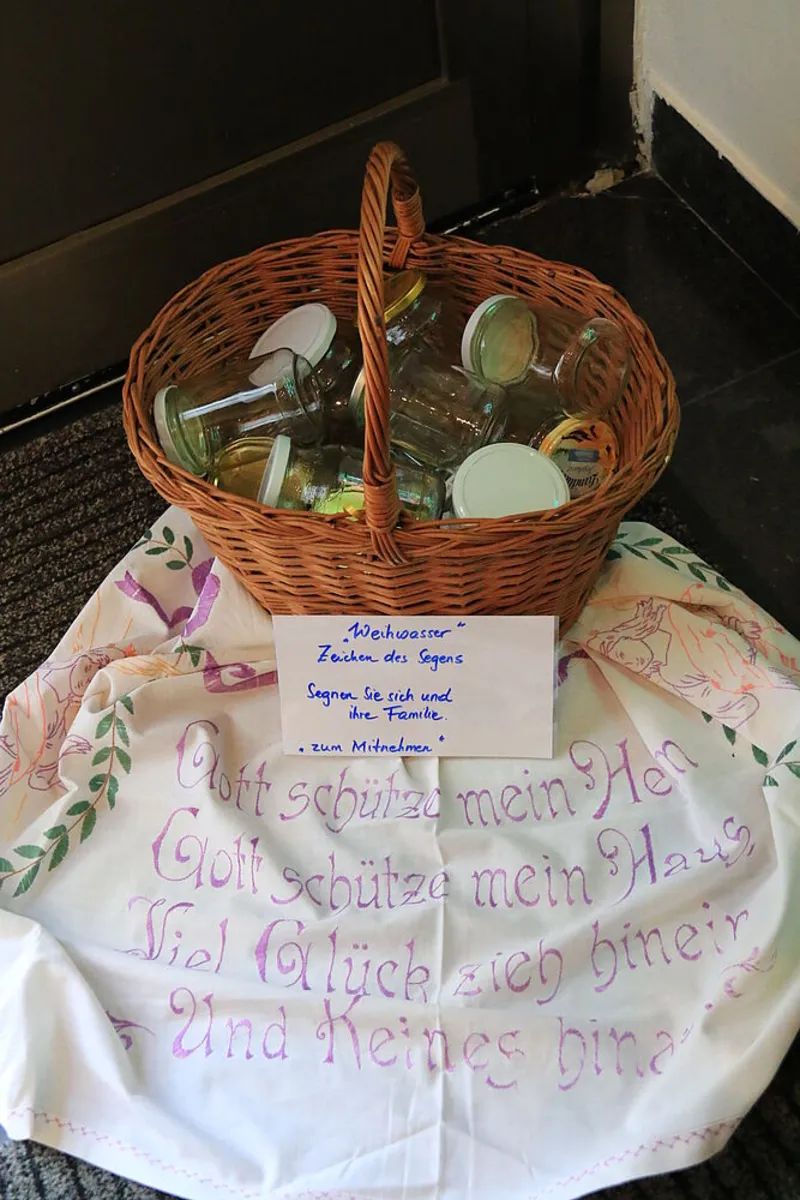 „Weihwasser“
Zeichen des Segens
Segnen Sie sich und
ihre Familie.
„zum Mitnehmen“
Gott schütze mein
Gott schütze mein Haus,
Viel Glück zieh
Und Keines